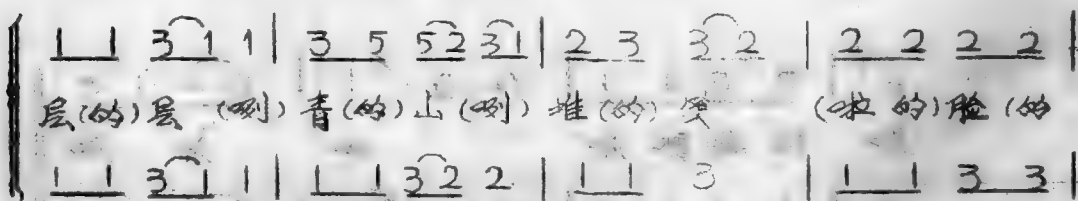 1 1 3 1 1 | 3 5 5 2 3 1 | 2 3 3 2 | 2 2 2 2 |
层(的)层(咧)青(的)山(咧)堆(的)笑(啦的)脸(的
1 1 3 1 1 | 1 1 3 2 2 | 1 1 3 | 1 1 3 3 |